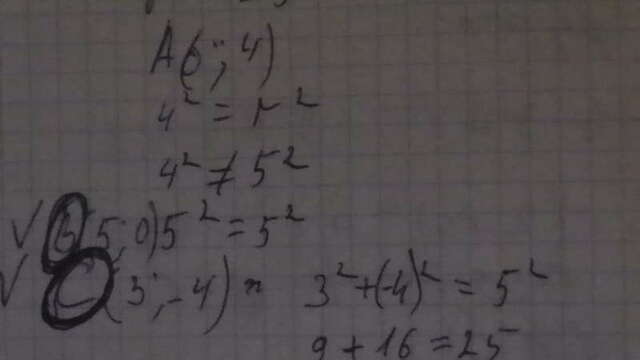 A(0; 4)
4² = r²
4² ≠ 5²
✓ B(5; 0) 5² = 5²
✓ C(3; -4) 3² + (-4)² = 5²
9 + 16 = 25